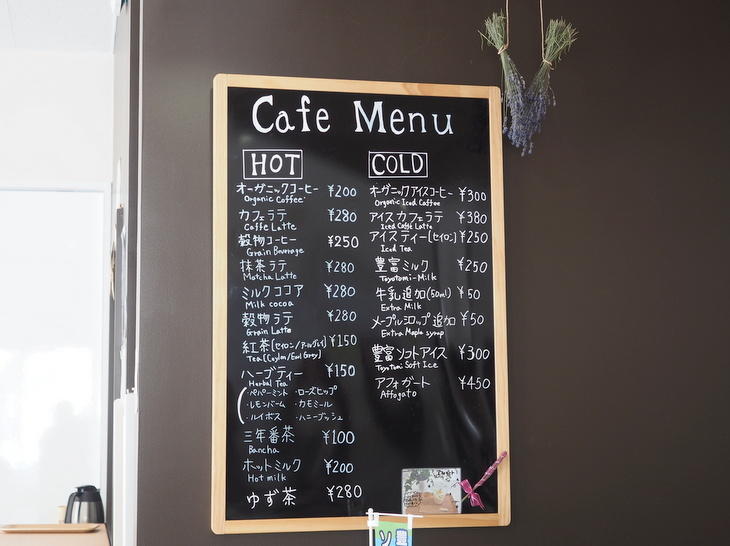 Cafe Menu
HOT
オーガニックコーヒー ¥200
Organic Coffee
カフェラテ ¥280
Caffe Latte
穀物コーヒー ¥250
Grain Beverage
抹茶ラテ ¥280
Matcha Latte
ミルクココア ¥280
Milk cocoa
穀物ラテ ¥280
Grain Latte
紅茶(セイロン/アールグレイ) ¥150
Tea (Ceylon/Earl Grey)
ハーブティー ¥150
Herbal Tea
・ペパーミント ・ローズヒップ
・レモンバーム ・カモミール
・ルイボス ・ハニーブッシュ
三年番茶 ¥100
Bancha
ホットミルク ¥200
Hot milk
ゆず茶 ¥280
COLD
オーガニックアイスコーヒー ¥300
Organic Iced Coffee
アイスカフェラテ ¥380
Iced Caffe Latte
アイスティー(セイロン) ¥250
Iced Tea
豊富ミルク ¥250
Toyotomi-Milk
牛乳追加(50ml) ¥50
Extra Milk
メープルシロップ追加 ¥50
Extra Maple syrup
豊富ソフトアイス ¥300
Toyotomi Soft Ice
アフォガート ¥450
Affogato